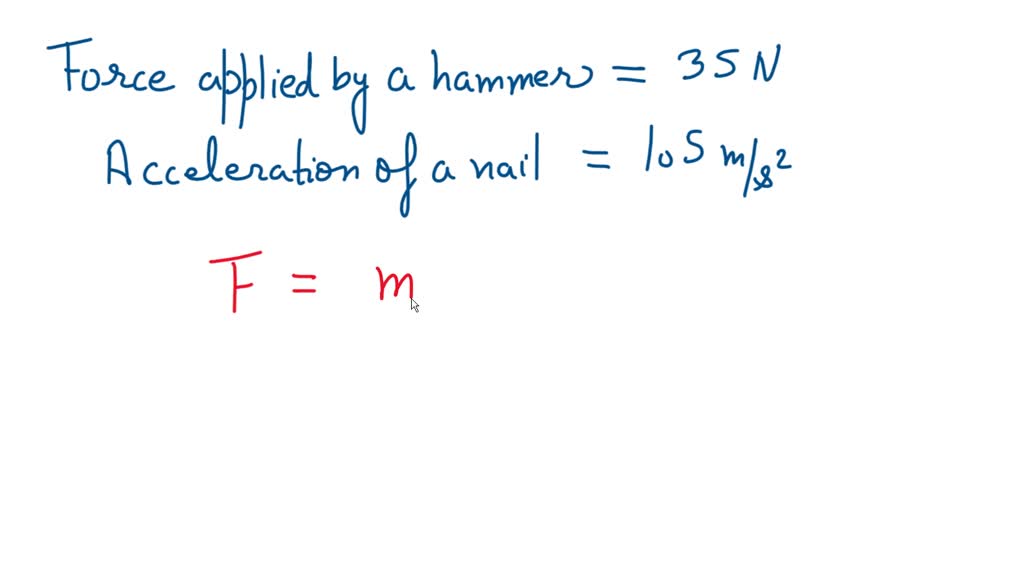 Force applied by a hammer = 35 N
Acceleration of a nail = 105 m/s²
F = m